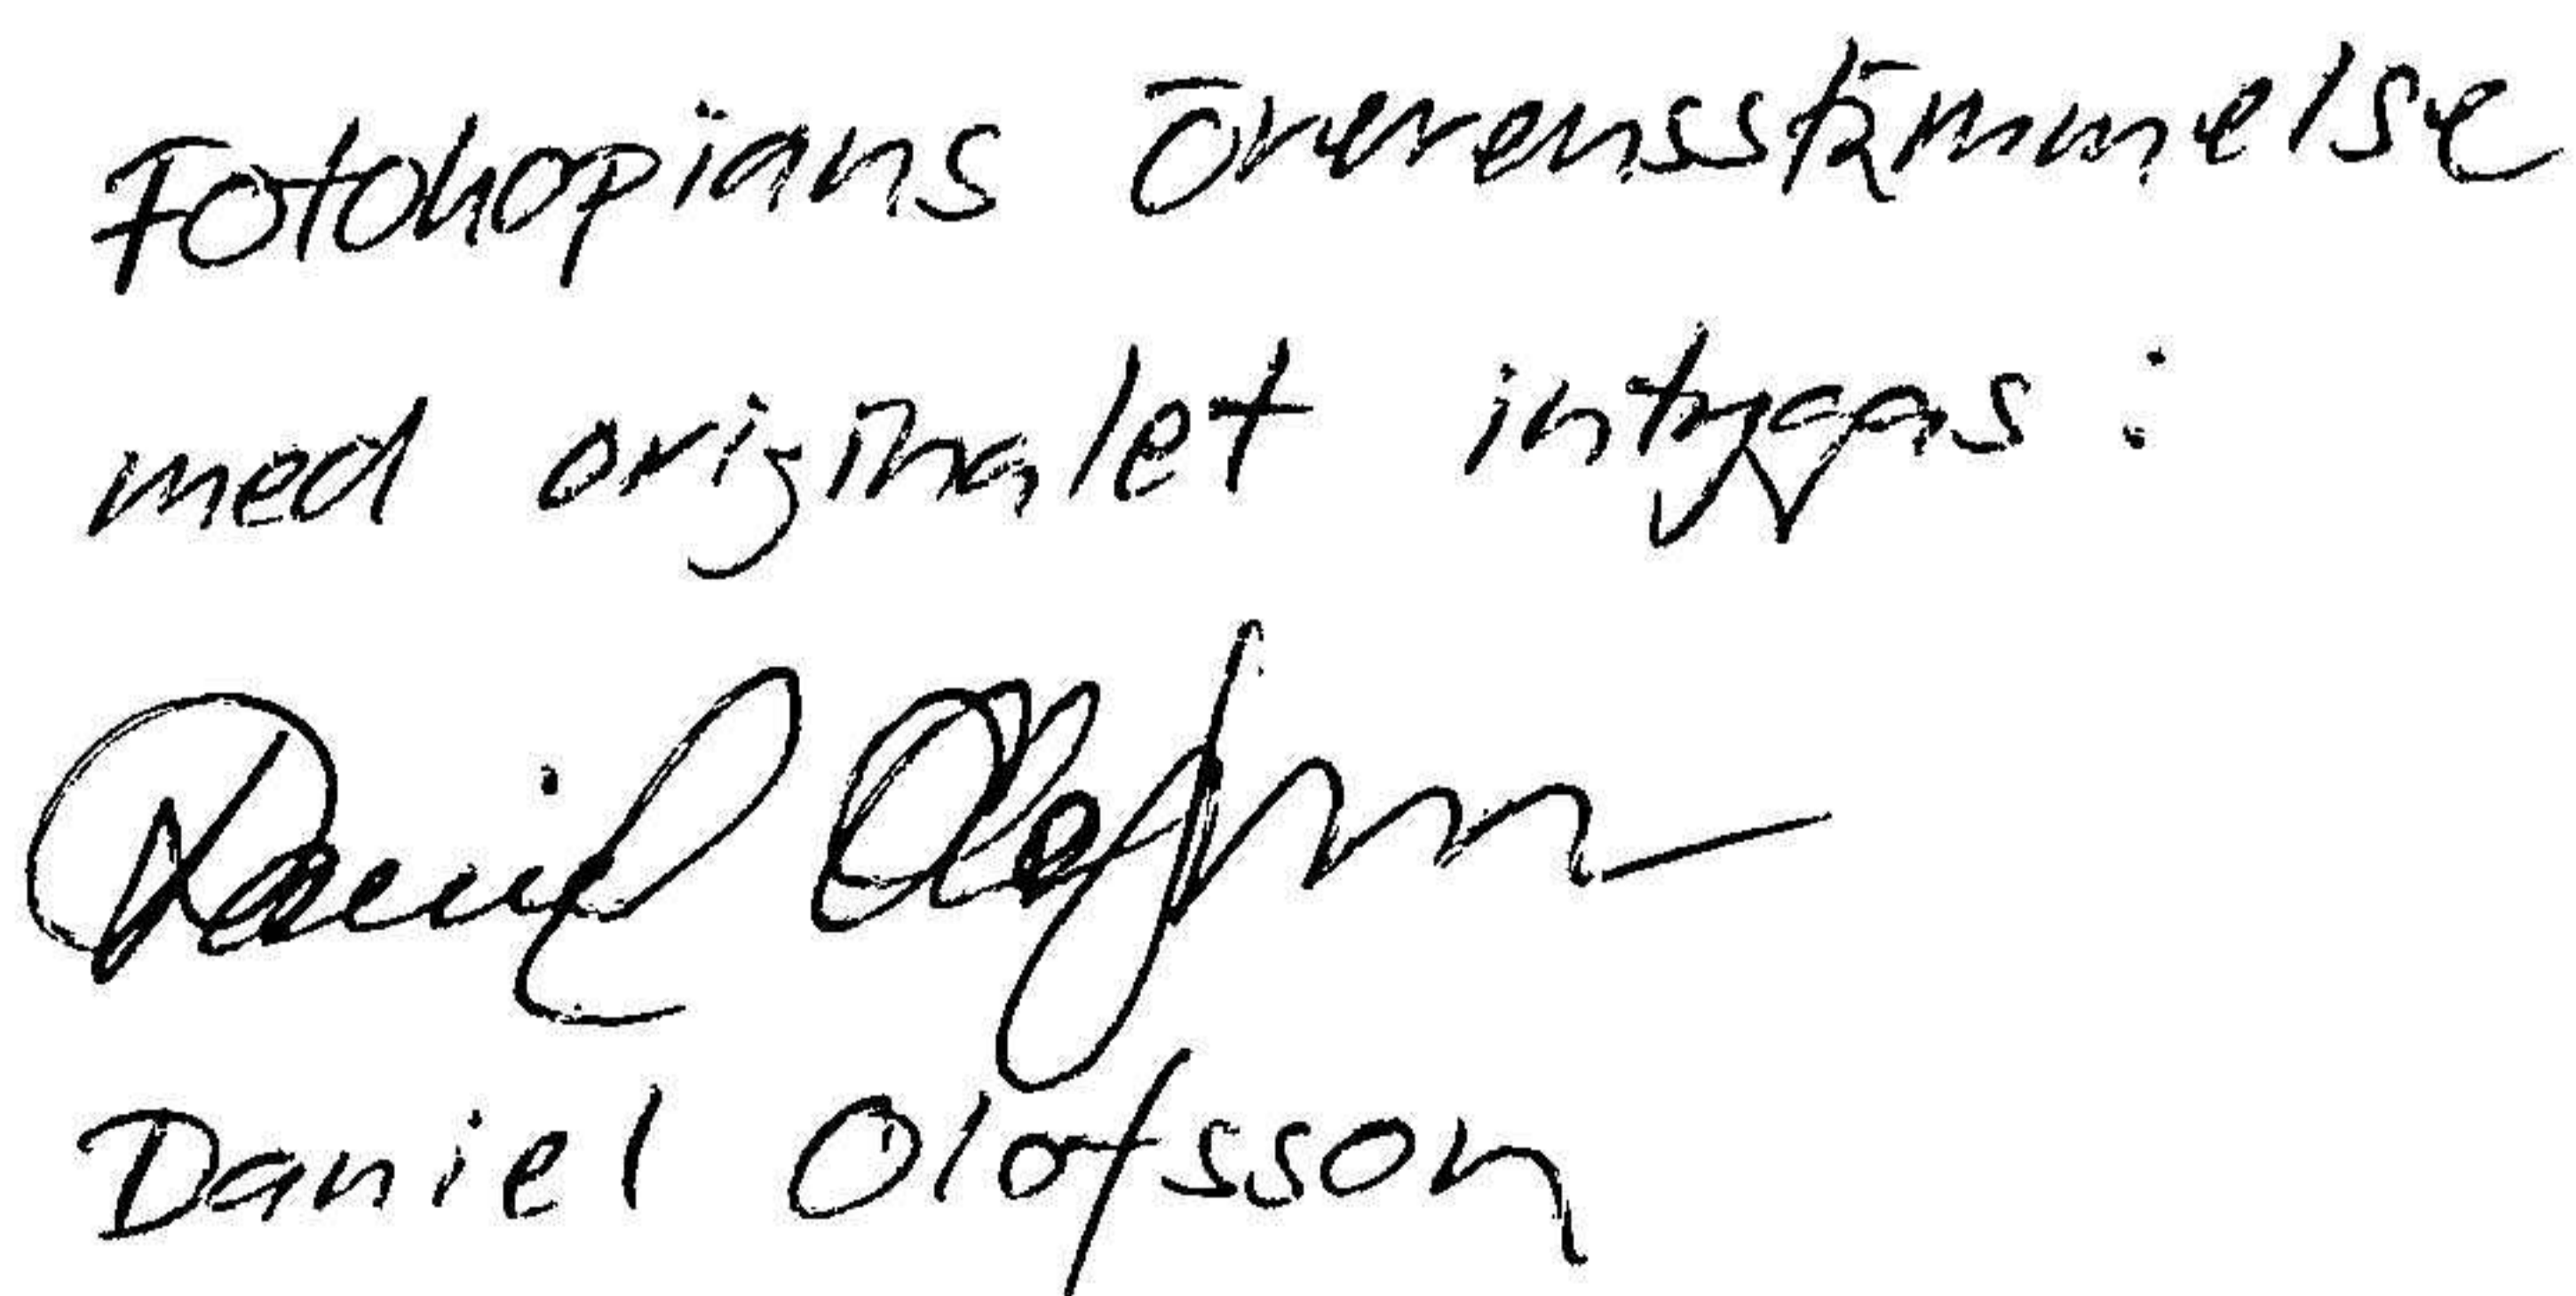 Fotokopians överensstämmelse
med originalet intygas:
Daniel Olofsson
Daniel Olofsson